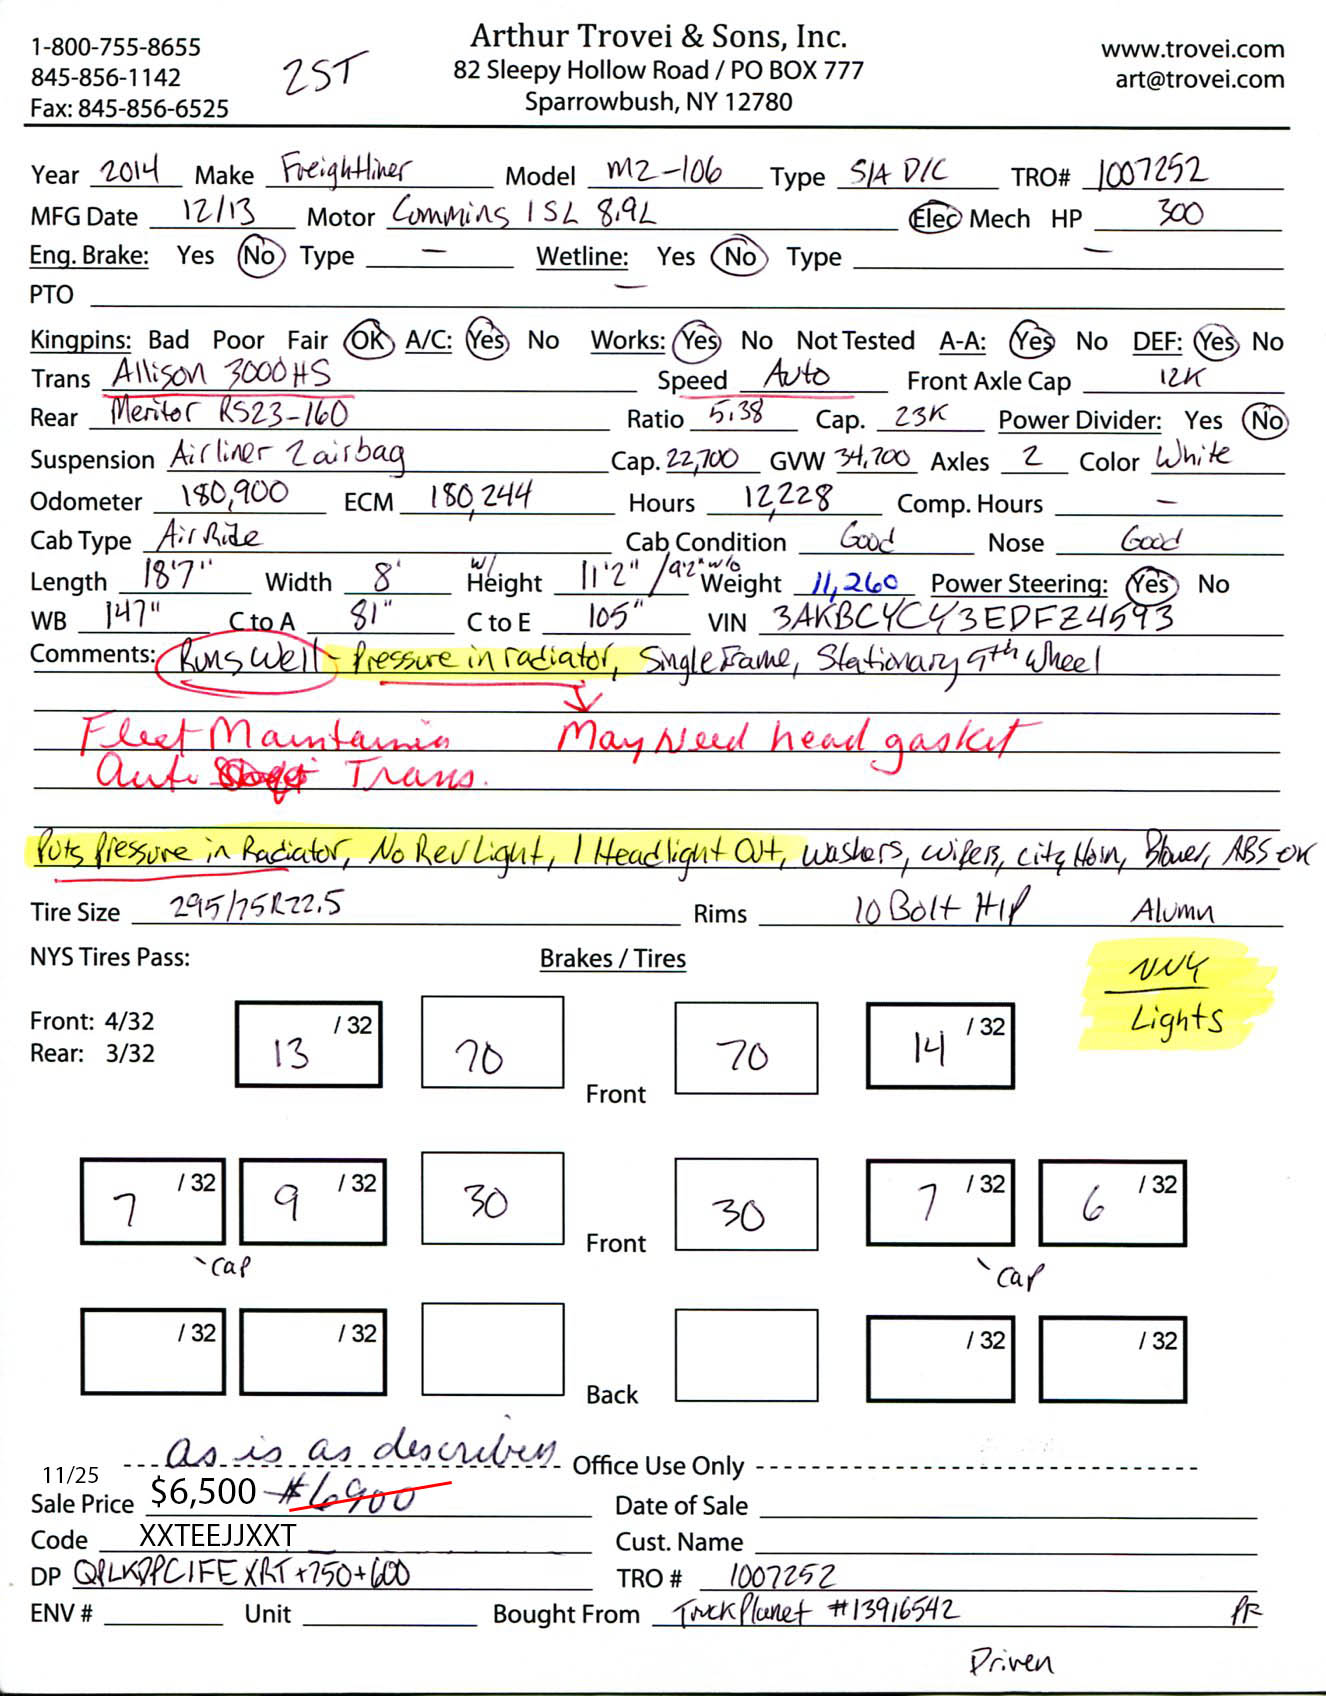 1-800-755-8655
845-856-1142
Fax: 845-856-6525
2ST
Arthur Trovei & Sons, Inc.
82 Sleepy Hollow Road / PO BOX 777
Sparrowbush, NY 12780
www.trovei.com
art@trovei.com
Year 2014 Make Freightliner Model M2-106 Type S/A D/C TRO# 1007252
MFG Date 12/13 Motor Cummins ISL 8.9L Elec Mech HP 300
Eng. Brake: Yes No Type — Wetline: Yes No Type —
PTO —
Kingpins: Bad Poor Fair OK A/C: Yes No Works: Yes No Not Tested A-A: Yes No DEF: Yes No
Trans Allison 3000HS Speed Auto Front Axle Cap 12K
Rear Meritor RS23-160 Ratio 5.38 Cap. 23K Power Divider: Yes No
Suspension Airliner 2 airbag Cap. 22,700 GVW 34,700 Axles 2 Color White
Odometer 180,900 ECM 180,244 Hours 12,228 Comp. Hours —
Cab Type Air Ride Cab Condition Good Nose Good
Length 18'7" Width 8' w/ Height 11'2" / 9'2" w/o Weight 11,260 Power Steering: Yes No
WB 147" C to A 81" C to E 105" VIN 3AKBCYCY3EDFZ4593
Comments: Runs Well - Pressure in radiator, Single Frame, Stationary 5th Wheel
Fleet Maintained May Need head gasket
Auto Trans.
Puts Pressure in Radiator, No Rev Light, 1 Headlight Out, Washers, Wipers, City Horn, Blower, ABS OK
Tire Size 295/75R22.5 Rims 10 Bolt H/P Alumn
NYS Tires Pass: Brakes / Tires
NNY
Lights
Front: 4/32
Rear: 3/32
13 /32 70 Front 70 14 /32
7 /32 9 /32 30 Front 30 7 /32 6 /32
cap cap
/32 /32 Back /32 /32
as is as described Office Use Only
11/25
Sale Price $6,500 $6900 Date of Sale
Code XXTEEJJXXT Cust. Name
DP QPLKDPCIFEXRT+750+600 TRO # 1007252
ENV # Unit Bought From TruckPlanet #13916542 PR
Driven